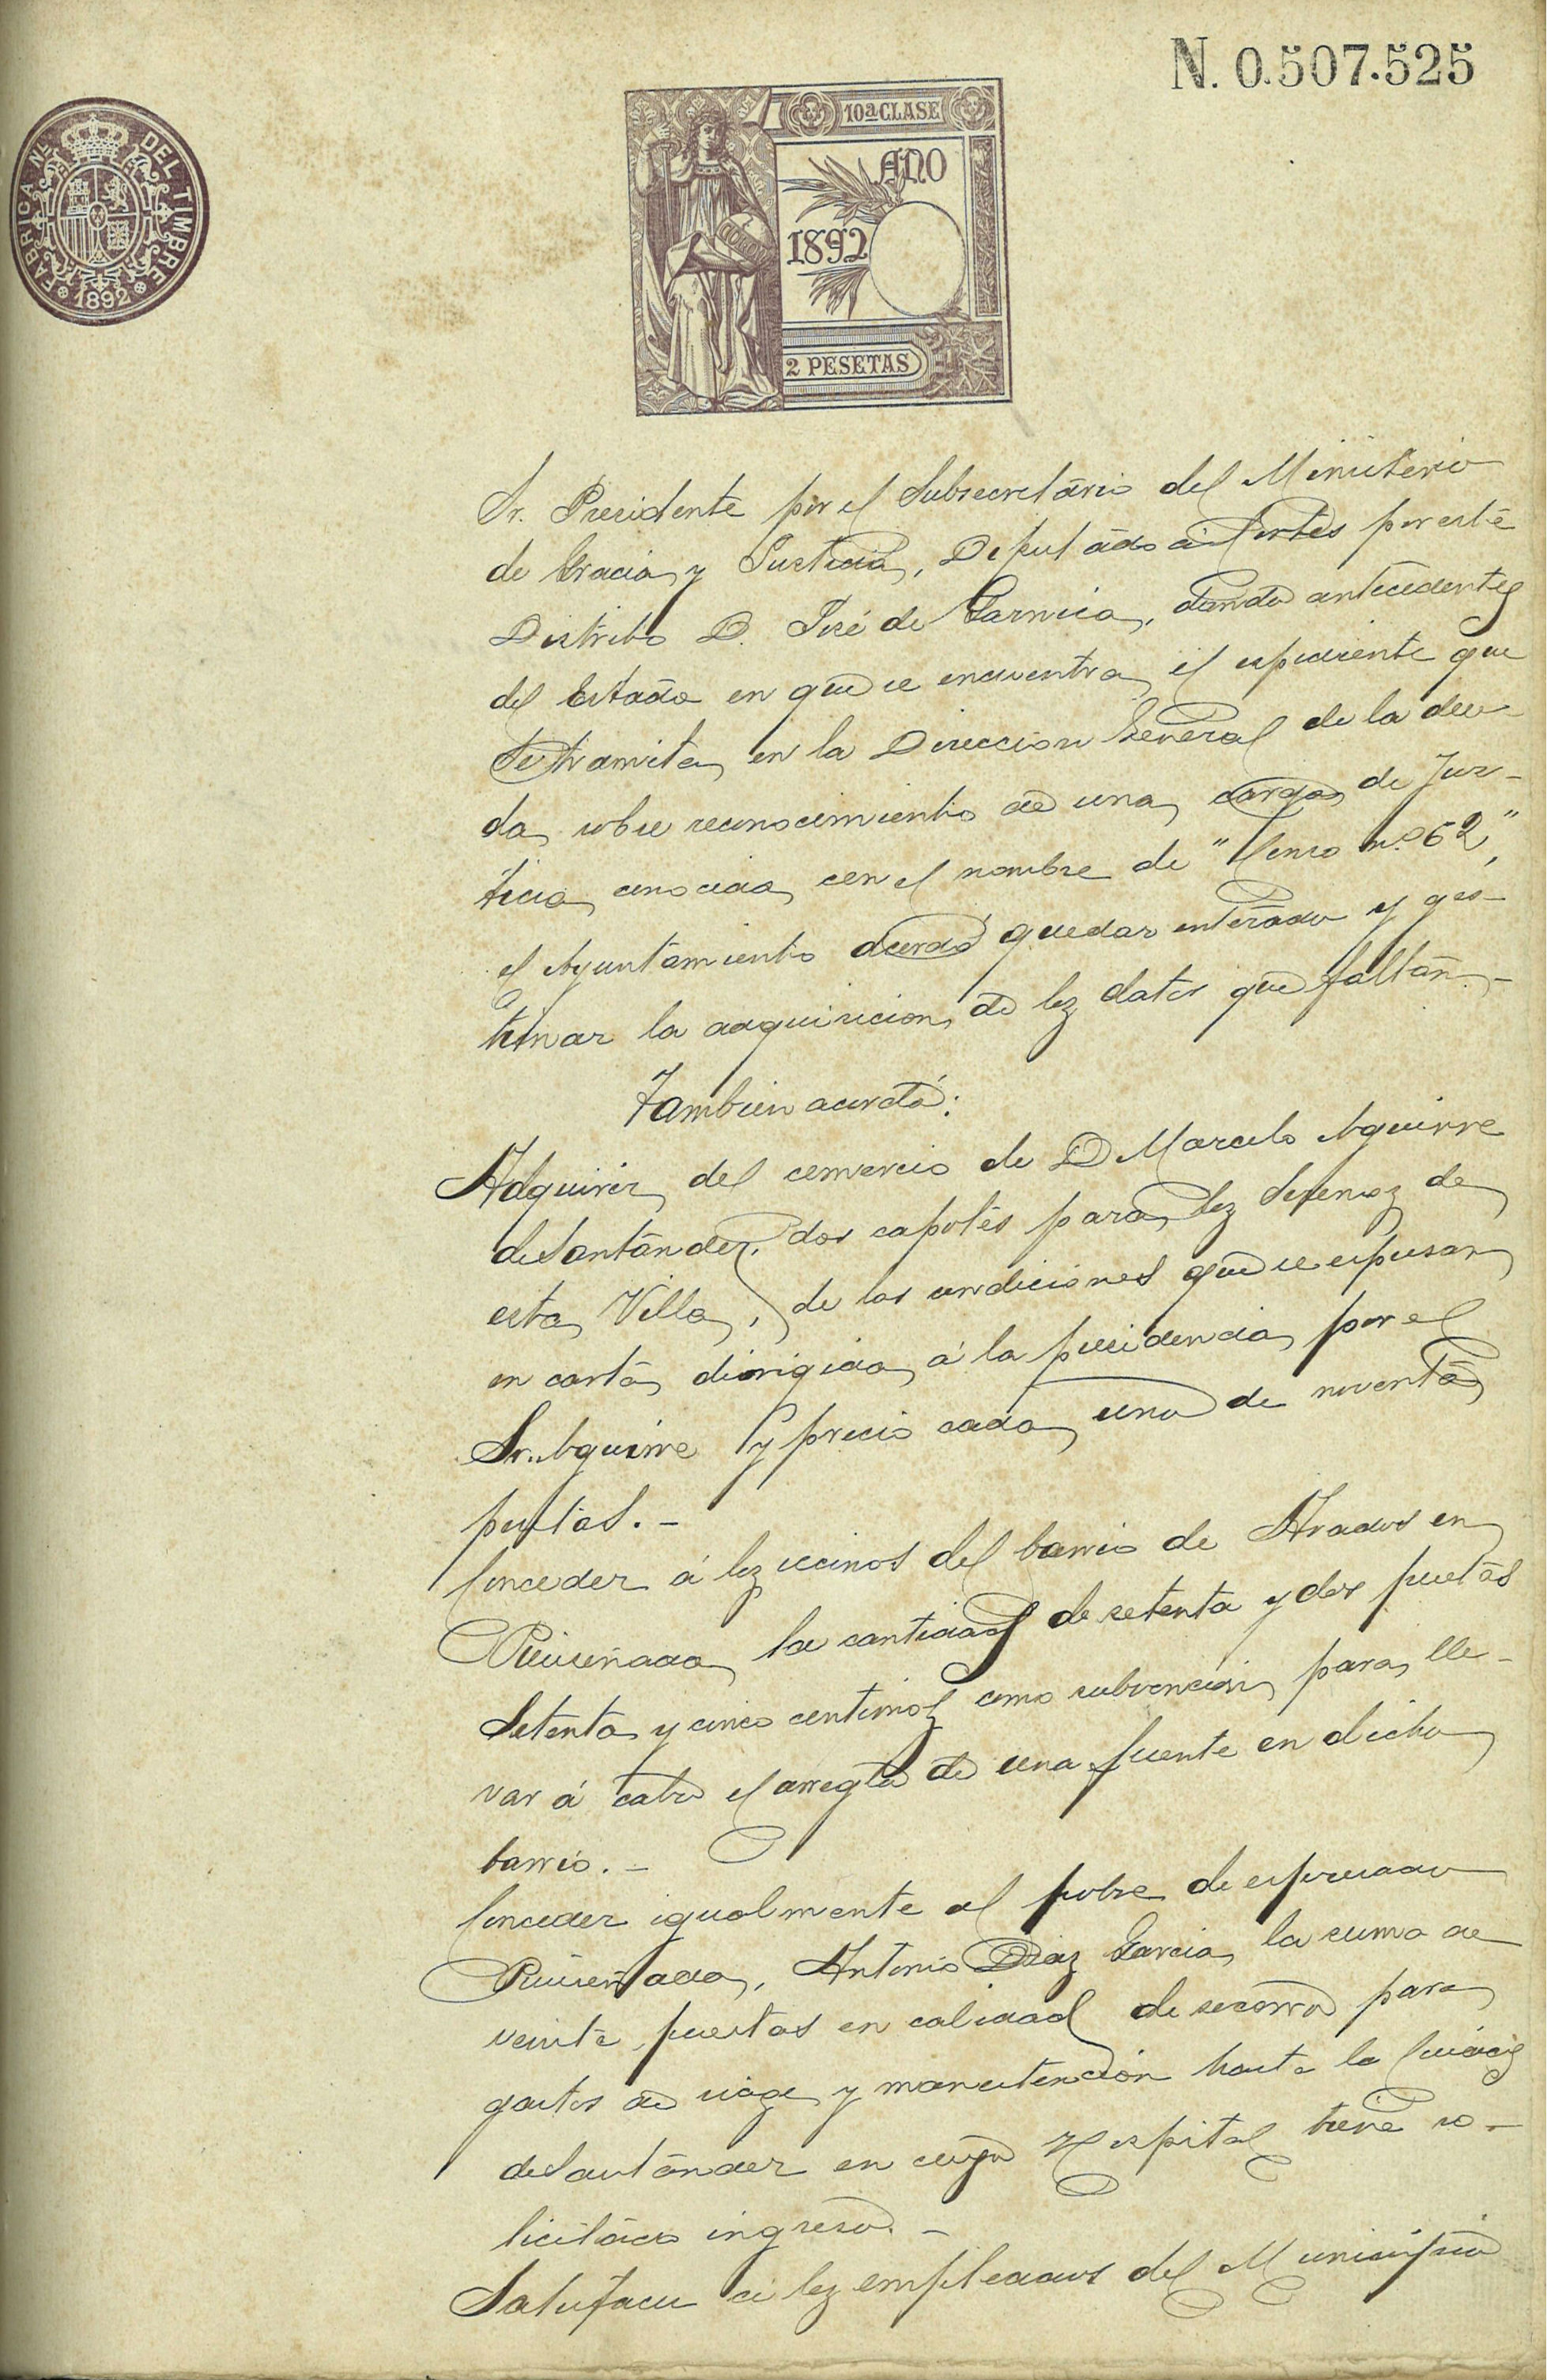 N. 0.507.525
FABRICA NAL DEL TIMBRE
1892
10ª CLASE
AÑO
1892
2 PESETAS
Sr. Presidente por el Subsecretario del Ministerio
de Gracia y Justicia, Diputado á Cortes por este
Distrito D. José de Garnica, dando antecedentes
del Estado en que se encuentra el espediente que
se tramita en la Direccion General de la deu-
da sobre reconocimiento de una carga de Jus-
ticia conocida con el nombre de "Censo nº 62",
el Ayuntamiento acordó quedar enterado y ges-
tionar la adquisicion de los datos que faltan.-
Tambien acordó:
Adquirir del comercio de D Marcelo Aguirre
de Santander, dos capotes para los Serenos de
esta Villa, de las condiciones que se espresan
en carta dirigida á la presidencia por el
Sr. Aguirre y precio cada uno de noventa
pesetas.-
Conceder á los vecinos del barrio de Arados en
Ruiseñada la cantidad de setenta y dos pesetas
Setenta y cinco centimos como subvencion para lle-
var á cabo el arreglo de una fuente en dicho
barrio.-
Conceder igualmente al pobre de espresado
Ruiseñada, Antonio Diaz Garcia, la suma de
veinte pesetas en calidad de socorro para
gastos de viage y manutención hasta la Ciudad
de Santander en cuyo Hospital tiene so-
licitado ingreso.-
Satisfacer á los empleados del Municipio